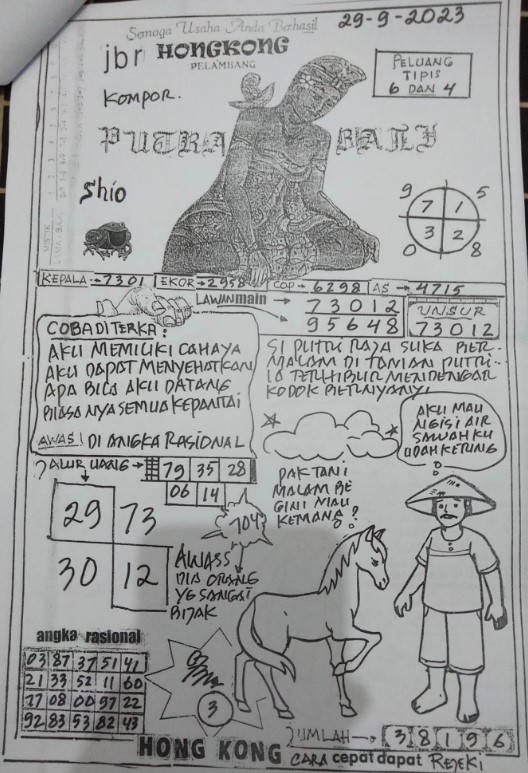 Semoga Usaha Anda Berhasil
29-9-2023
jbr HONGKONG
PELAMBANG
PELUANG
TIPIS
6 DAN 4
KOMPOR.
PUTRA BALI
Shio
9 5
7 1
3 2
0 8
KEPALA → 7301 EKOR → 2958 COP → 6298 AS → 4715
LAWAN main → 73012
→ 95648
UNSUR
73012
COBA DI TERKA:
AKU MEMILIKI CAHAYA
AKU DAPAT MENYEHATKAN
APA BILA AKU DATANG
BIASA NYA SEMUA KEPANTAI
AWAS! DI ANGKA RASIONAL
SI PUTRI RAJA SUKA BER
MALAM DI TAMAN PUTRI-
IA TERHIBUR MENDENGAR
KODOK BERNYANYI
AKU MAU
NGISI AIR
SAWAH KU
UDAH KERING
JALUR UANG → 79 35 28
06 14
PAK TANI
MALAM BE
GINI MAU
KEMANA?
29 73
30 12
704
AWASS
DIA ORANG
YG SANGAT
BIJAK
angka rasional
03 87 37 51 41
21 33 52 11 60
77 08 00 97 22
92 83 53 82 43
3
JUMLAH → 3 8 1 9 6
HONG KONG CARA cepat dapat REJEKI